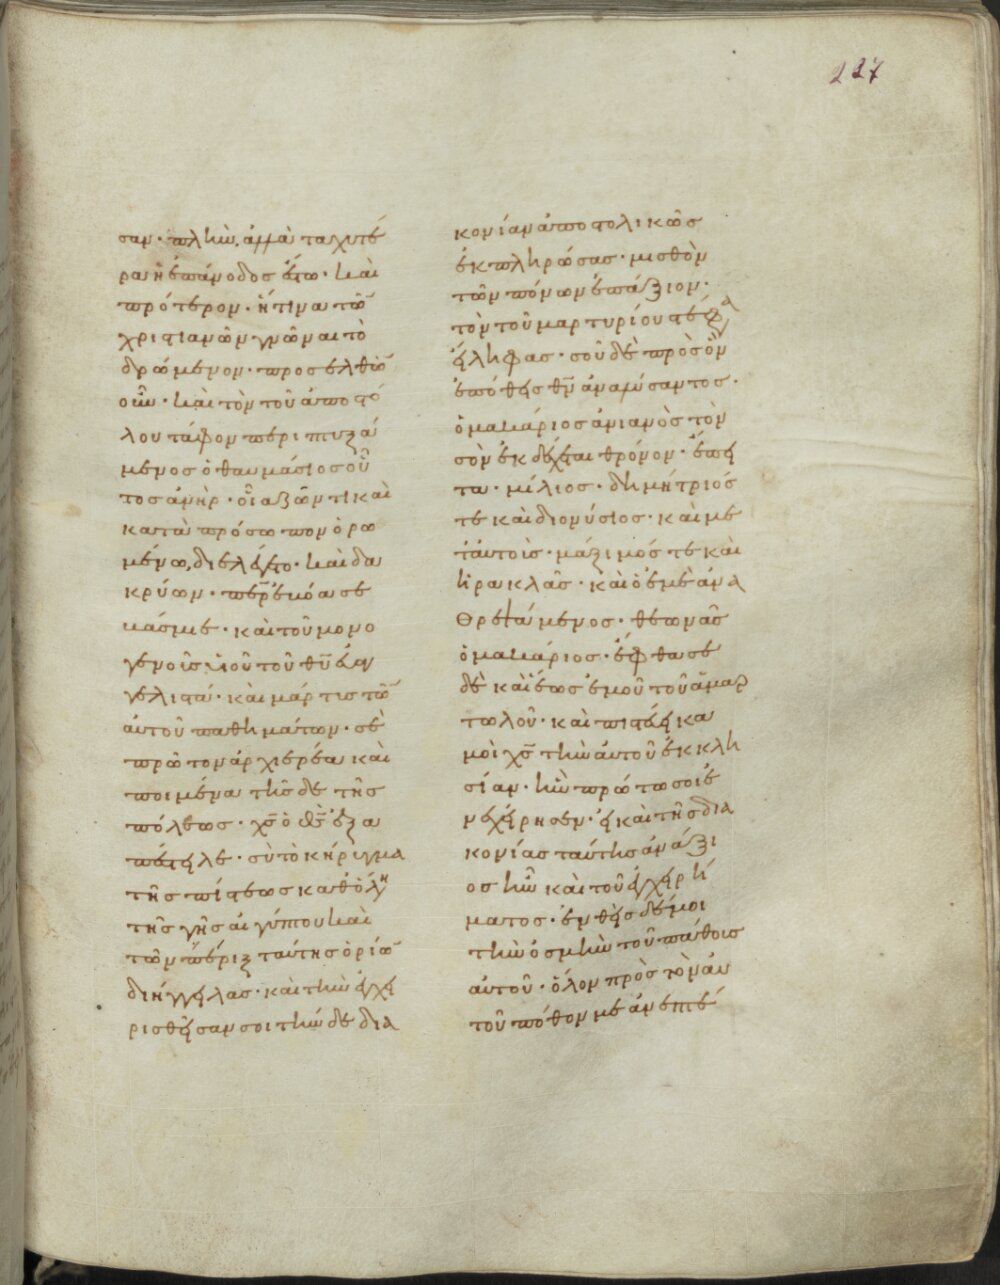 227
σαν· πλὴν, ἀλλὰ ταχυτέ
ρα ἡ ἐπάνοδος ἔστω· καὶ
πρότερον· ἤ τινα τῶ
χριστιανῶν γνῶναι τὸ
δρώμενον· προσελθὼ
οὖν· καὶ τὸν τοῦ ἀποστό
λου τάφον περιπτυξά
μενος ὁ θαυμάσιος οὗ
τος ἀνὴρ· οἷα ζῶντι καὶ
κατὰ πρόσωπον ὁρω
μένω, διελέγετο· καὶ δα
κρύων· περ ἐμόα σὲ
κἀμὲ· καὶ τοῦ μονο
γενοῦς υἱοῦ τοῦ θῡ εὐαγ
γελιστά· καὶ μάρτυς τῶ
αὐτοῦ παθημάτων· σὲ
πρῶτον ἀρχιερέα καὶ
ποιμένα τῆσδε τῆς
πόλεως· χς̄ ὁ θς̄ ἐξα
πέστειλε· σὺ τὸ κήρυγμα
τῆς πίστεως καθόλης
τῆς γῆς αἰγύπτου καὶ
τῶν πέριξ ταύτης ὁρίω
διήγγειλας· καὶ τὴν ἐγχει
ρισθεῖσαν σοι τήνδε δια
κονίαν ἀποστολικῶς
ἐκπληρώσας· μισθὸν
τῶν πόνων ἐπάξιον·
τὸν τοῦ μαρτυρίου στέφα
εἴληφας· σοῦ δὲ πρὸς ὃν
ἐπόθεις θν̄ ἀναλύσαντος·
ὁ μακάριος ἀνιανὸς τὸν
σὸν ἐκδέχεται θρόνον· ἔπει
τα· μίλιος· δημήτριός
τε καὶ διονύσιος· καὶ με
τ' αὐτοὺς· μάξιμός τε καὶ
ἡρακλᾶς· καὶ ὁ ἐμὲ ἀνα
θρεψάμενος· θεωνᾶς
ὁ μακάριος· ἔφθασε
δὲ καὶ ἕως ἐμοῦ τοῦ ἁμαρ
τωλοῦ· καὶ πιστεύει κα
μοὶ χς̄ τὴν αὐτοῦ ἐκκλη
σίαν· ἣν πρώτω σοι ἐ
νεχείρησεν· εἰ καὶ τῆς δια
κονίας ταύτης ἀνάξι
ος ἦν καὶ τοῦ ἐγχειρή
ματος· ἐνθεὶς δέ μοι
τὴν ὀσμὴν τοῦ πάθους
αὐτοῦ· ὅλον πρὸς τὸν αὐ
τοῦ πόθον με ἀνεπτέ